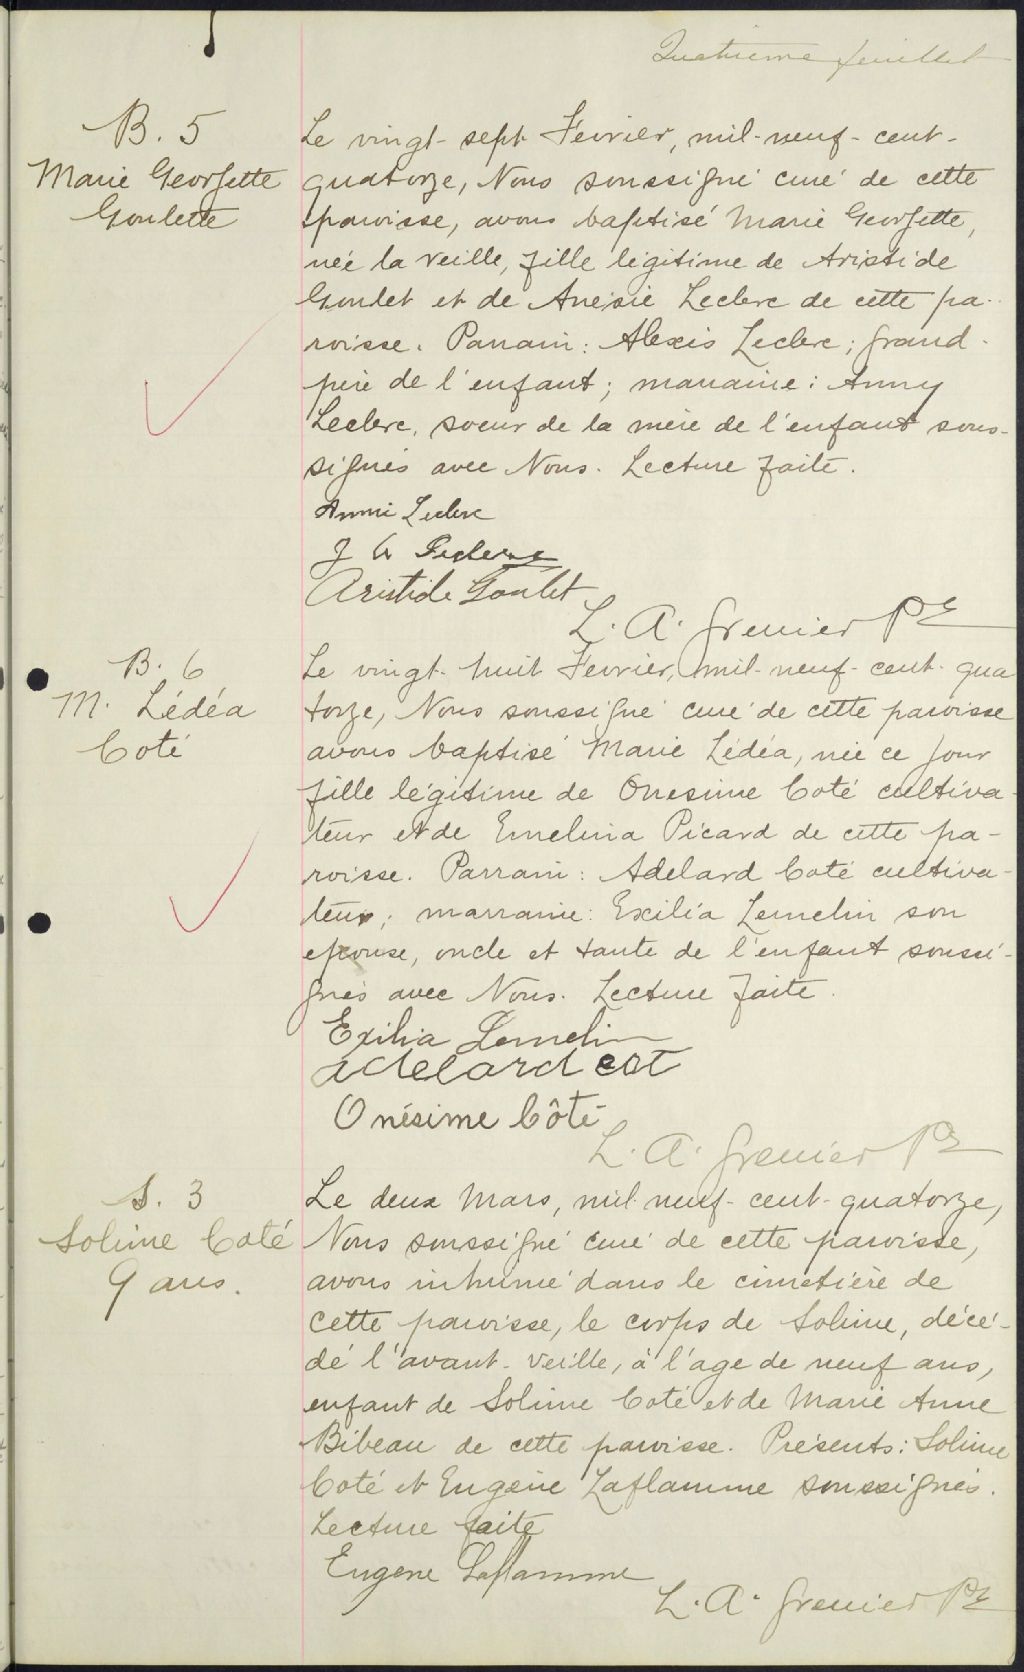 Quatrième feuillet
B. 5
Marie Georgette
Goulette
Le vingt-sept Février, mil-neuf-cent-
quatorze, Nous soussigné curé de cette
paroisse, avons baptisé Marie Georgette,
née la veille, fille légitime de Aristide
Goulet et de Anésie Leclerc de cette pa-
roisse. Parrain: Alexis Leclerc; grand-
père de l'enfant; marraine: Anny
Leclerc, soeur de la mère de l'enfant sous-
signés avec Nous. Lecture faite.
Annie Leclerc
J A Leclerc
Aristide Goulet
L. A. Grenier Ptre
B. 6
M. Lédéa
Coté
Le vingt-huit Février, mil-neuf-cent-qua
torze, Nous soussigné curé de cette paroisse
avons baptisé Marie Lédéa, née ce jour
fille légitime de Onesime Coté cultiva-
teur et de Emelina Picard de cette pa-
roisse. Parrain: Adelard Coté cultiva-
teur; marraine: Exilia Lemelin son
epouse, oncle et tante de l'enfant soussi-
gnés avec Nous. Lecture faite.
Exilia Lemelin
adelard cot
Onésime Côté
L. A. Grenier Ptre
S. 3
Solime Coté
9 ans.
Le deux Mars, mil-neuf-cent-quatorze,
Nous soussigné curé de cette paroisse,
avons inhumé dans le cimetière de
cette paroisse, le corps de Solime, décé-
dé l'avant-veille, à l'age de neuf ans,
enfant de Solime Coté et de Marie Anne
Bibeau de cette paroisse. Présents: Solime
Coté et Eugène Laflamme soussignés.
Lecture faite
Eugene Laflamme
L. A. Grenier Ptre